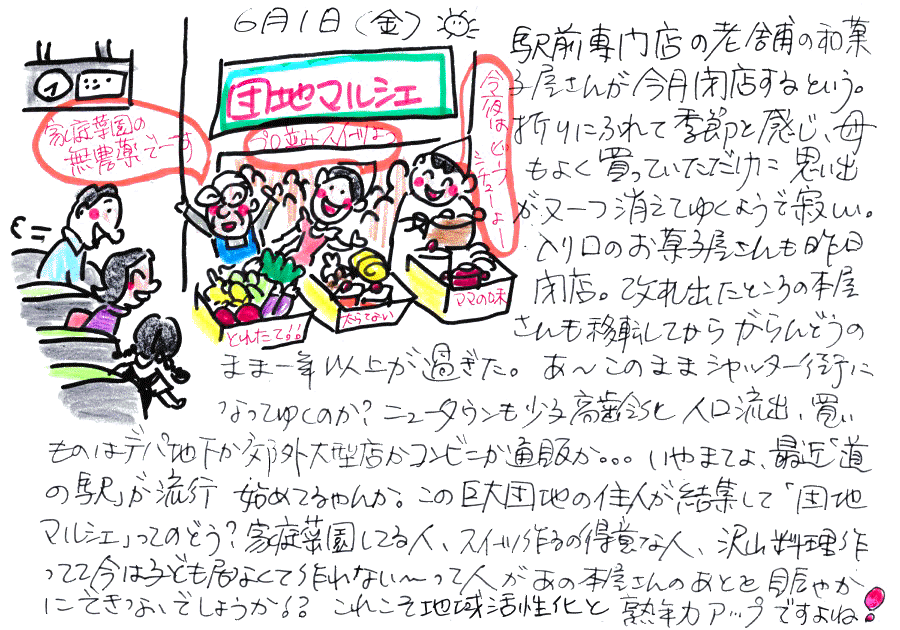 6月1日(金)
団地マルシェ
家庭菜園の
無農薬でーす
プロ並みスイーツよ
今夜はビーフシチューよー
とれたて!!
太らない
ママの味
駅前専門店の老舗の和菓
子屋さんが今月閉店するという。
折りにふれて季節を感じ、母
もよく買っていただけに思い出
が又一つ消えてゆくようで寂しい。
入り口のお菓子屋さんも昨日
閉店。改札出たところの本屋
さんも移転してからがらんどうの
まま一年以上が過ぎた。あ〜このままシャッター街に
なってゆくのか?ニュータウンも少子高齢化と人口流出、買い
ものはデパ地下か郊外大型店かコンビニか通販か。。。いやまてよ、最近「道
の駅」が流行始めてるやんか。この巨大団地の住人が結集して「団地
マルシェ」ってのどう?家庭菜園してる人、スイーツ作るの得意な人、沢山料理作
ってて今は子ども居なくて作れない〜って人があの本屋さんのあとを賑やか
にできないでしょうか??これこそ地域活性化と熟年力アップですよね!